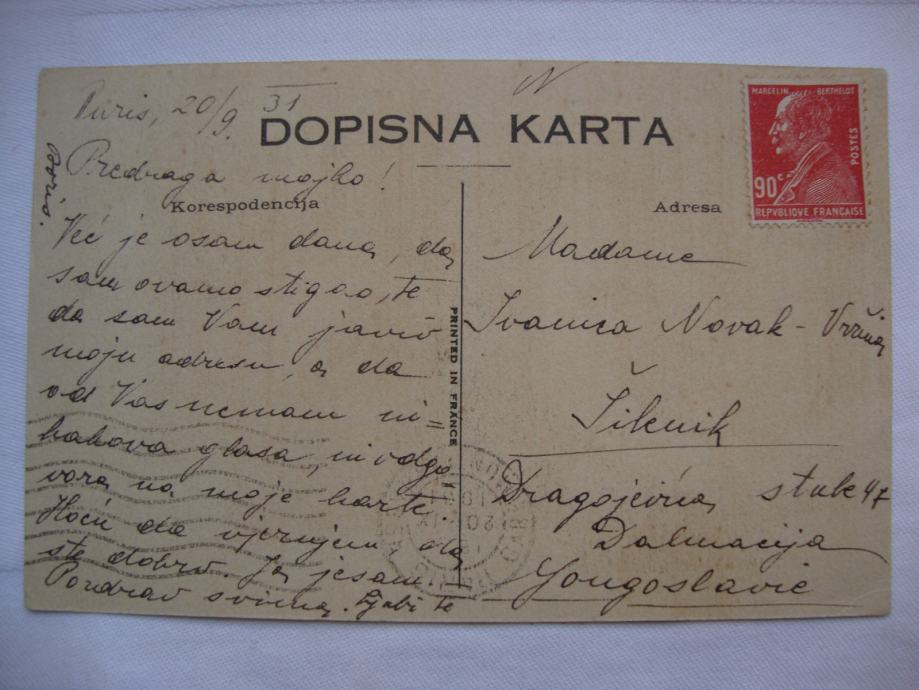 Paris, 20/9. 31
DOPISNA KARTA
MARCELIN BERTHELOT
POSTES
90c
REPVBLIQVE FRANCAISE
Predraga majko!
Korespodencija
Adresa
Već je osam dana, da
sam ovamo stigao, te
da sam Vam javio
moju adresu, a da
od Vas nemam ni=
kakova glasa, ni odgo
vora na moje karte.
Hoću da vjerujem, da
ste dobro. Ja jesam.
Pozdrav svima. Ljubi te
Boris.
PRINTED IN FRANCE
Madame
Ivanica Novak-
Šibenik
Dragojevića stube 47
Dalmacija
Yougoslavie